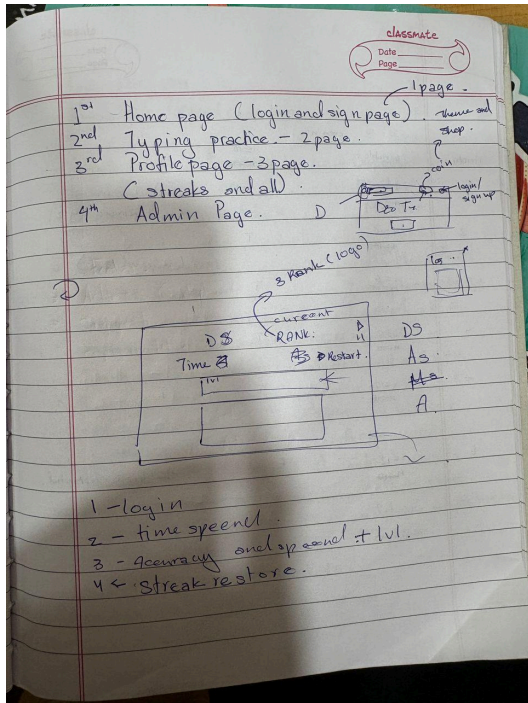 classmate
Date
Page
1 page.
1st Home page (login and sign page).
theme and shop.
2nd Typing practice. - 2 page.
3rd Profile page - 3 page.
(streaks and all)
coin
login/
sign up
4th Admin Page.
D
3 Rank (logo)
current
DS
RANK:
Time
Restart.
lvl
DS
As
A
1 - login
2 - time speend.
3 - accuracy and speend + lvl.
4 ← streak restore.